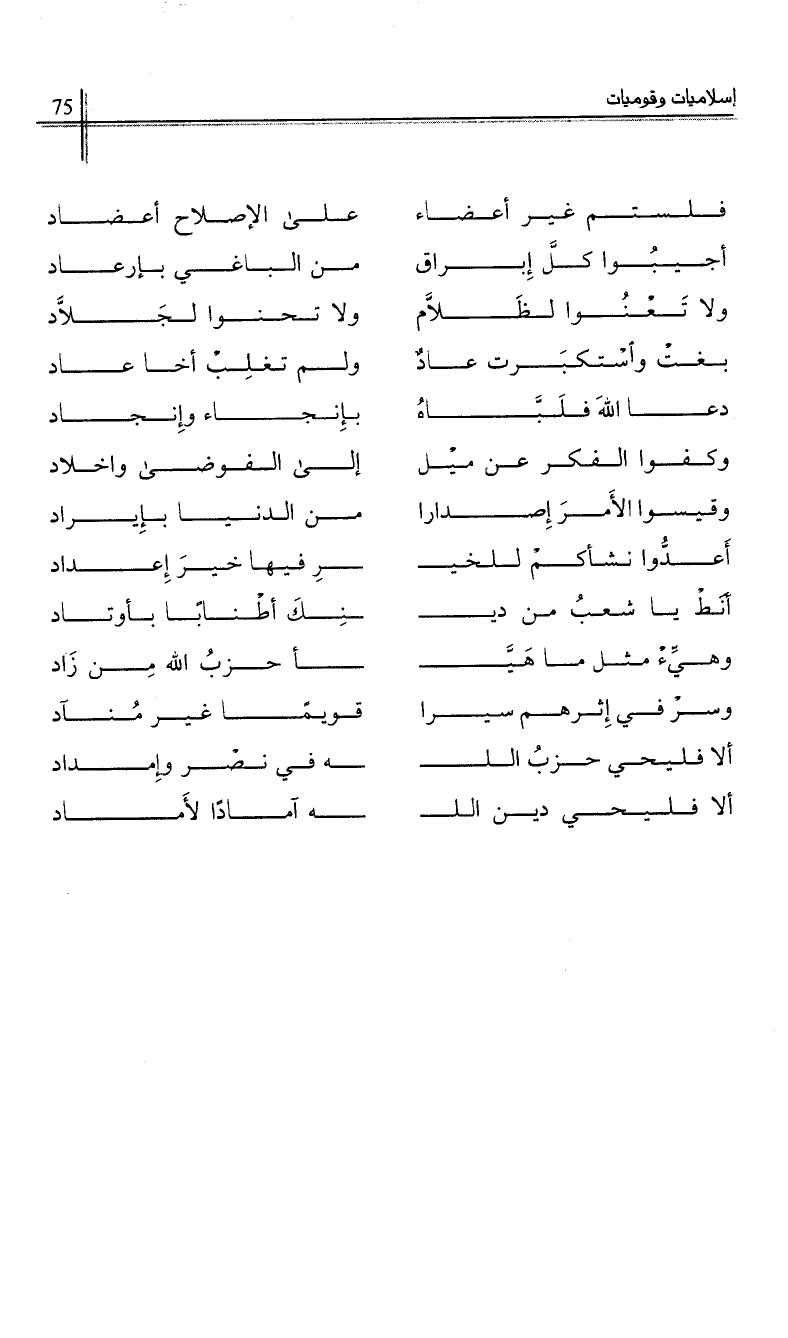 إسلاميات وقوميات 75
فلستم غير أعضاء على الإصلاح أعضاد
أجيبُوا كلَّ إبراق من الباغي بإرعاد
ولا تَعْنُوا لظَلاَّم ولا تحنوا لجَلاَّد
بغتْ وأسْتكبَرت عادٌ ولم تغلِبْ أخا عاد
دعا اللهَ فلَبَّاهُ بإِنجاء وإِنجاد
وكفوا الفكر عن ميْل إلى الفوضى واخلاد
وقيسوا الأمرَ إصدارا من الدنيا بإيراد
أَعدُّوا نشأكمْ للخيـ ـرِ فيها خيرَ إعداد
أنَطْ يا شعبُ من ديـ ـنِكَ أطْنابًا بأوتاد
وهيِّءْ مثل ما هَيَّـ ـأ حزبُ الله مِن زَاد
وسرْ في إثرهم سيرا قويمًا غير مُنآد
ألا فليحي حزبُ اللـ ـه في نصْر وإمداد
ألا فليحي دين اللـ ـه آمادًا لأَماد